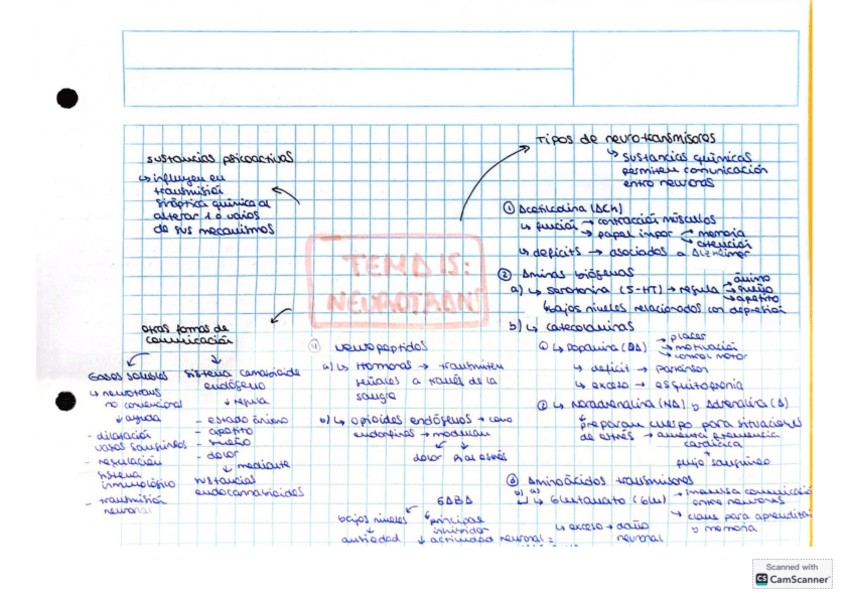 Tipos de neurotransmisores
↳ sustancias químicas
permiten comunicación
entre neuronas
① Acetilcolina (ACh)
↳ función → contracción músculos
→ papel impor → memoria
→ atención
↳ deficits → asociados a Alzheimer
② Aminas biógenas
a) ↳ serotonina (5-HT) → regula → ánimo
→ sueño
→ apetito
↳ bajos niveles relacionados con depresión
b) ↳ catecolaminas
① ↳ Dopamina (DA) → placer
→ motivación
→ control motor
↳ deficit → parkinson
↳ exceso → esquizofrenia
② ↳ Noradrenalina (NA) y Adrenalina (A)
↓ preparan cuerpo para situaciones
de estrés → aumenta frecuencia
cardíaca
+
flujo sanguíneo
③ Aminoácidos transmisores
b) a)
↳ Glutamato (Glu) → impulsa comunicació
entre neuronas
→ clave para aprendizaj
y memoria
↳ exceso → daño
neuronal
GABA
bajos niveles
↓
ansiedad
principal
inhibidor
↓ actividad neuronal =
④ Neuropeptidos
a) ↳ Hormonas → transmiten
señales a través de la
sangre
b) ↳ opioides endógenos → como
endorfinas → modulan
dolor
R al estrés
sustancias psicoactivas
↳ influyen en
transmisión
sináptica química al
alterar 1 o varios
de sus mecanismos
TEMA 15:
NEUROTRAN
otras formas de
comunicación
Gases solubles
↳ neurotrans
no convencional
↓ ayuda
- dilatación
vasos sanguíneos
- regulación
sistema
inmunológico
- transmisión
neuronal
sistema cannabioide
endógeno
↓ regula
- estado ánimo
- apetito
- sueño
- dolor
↓ mediante
sustancias
endocannabioides
Scanned with
CS CamScanner